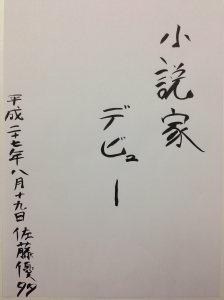 小説家
デビュー
平成二十七年八月十九日 佐藤優